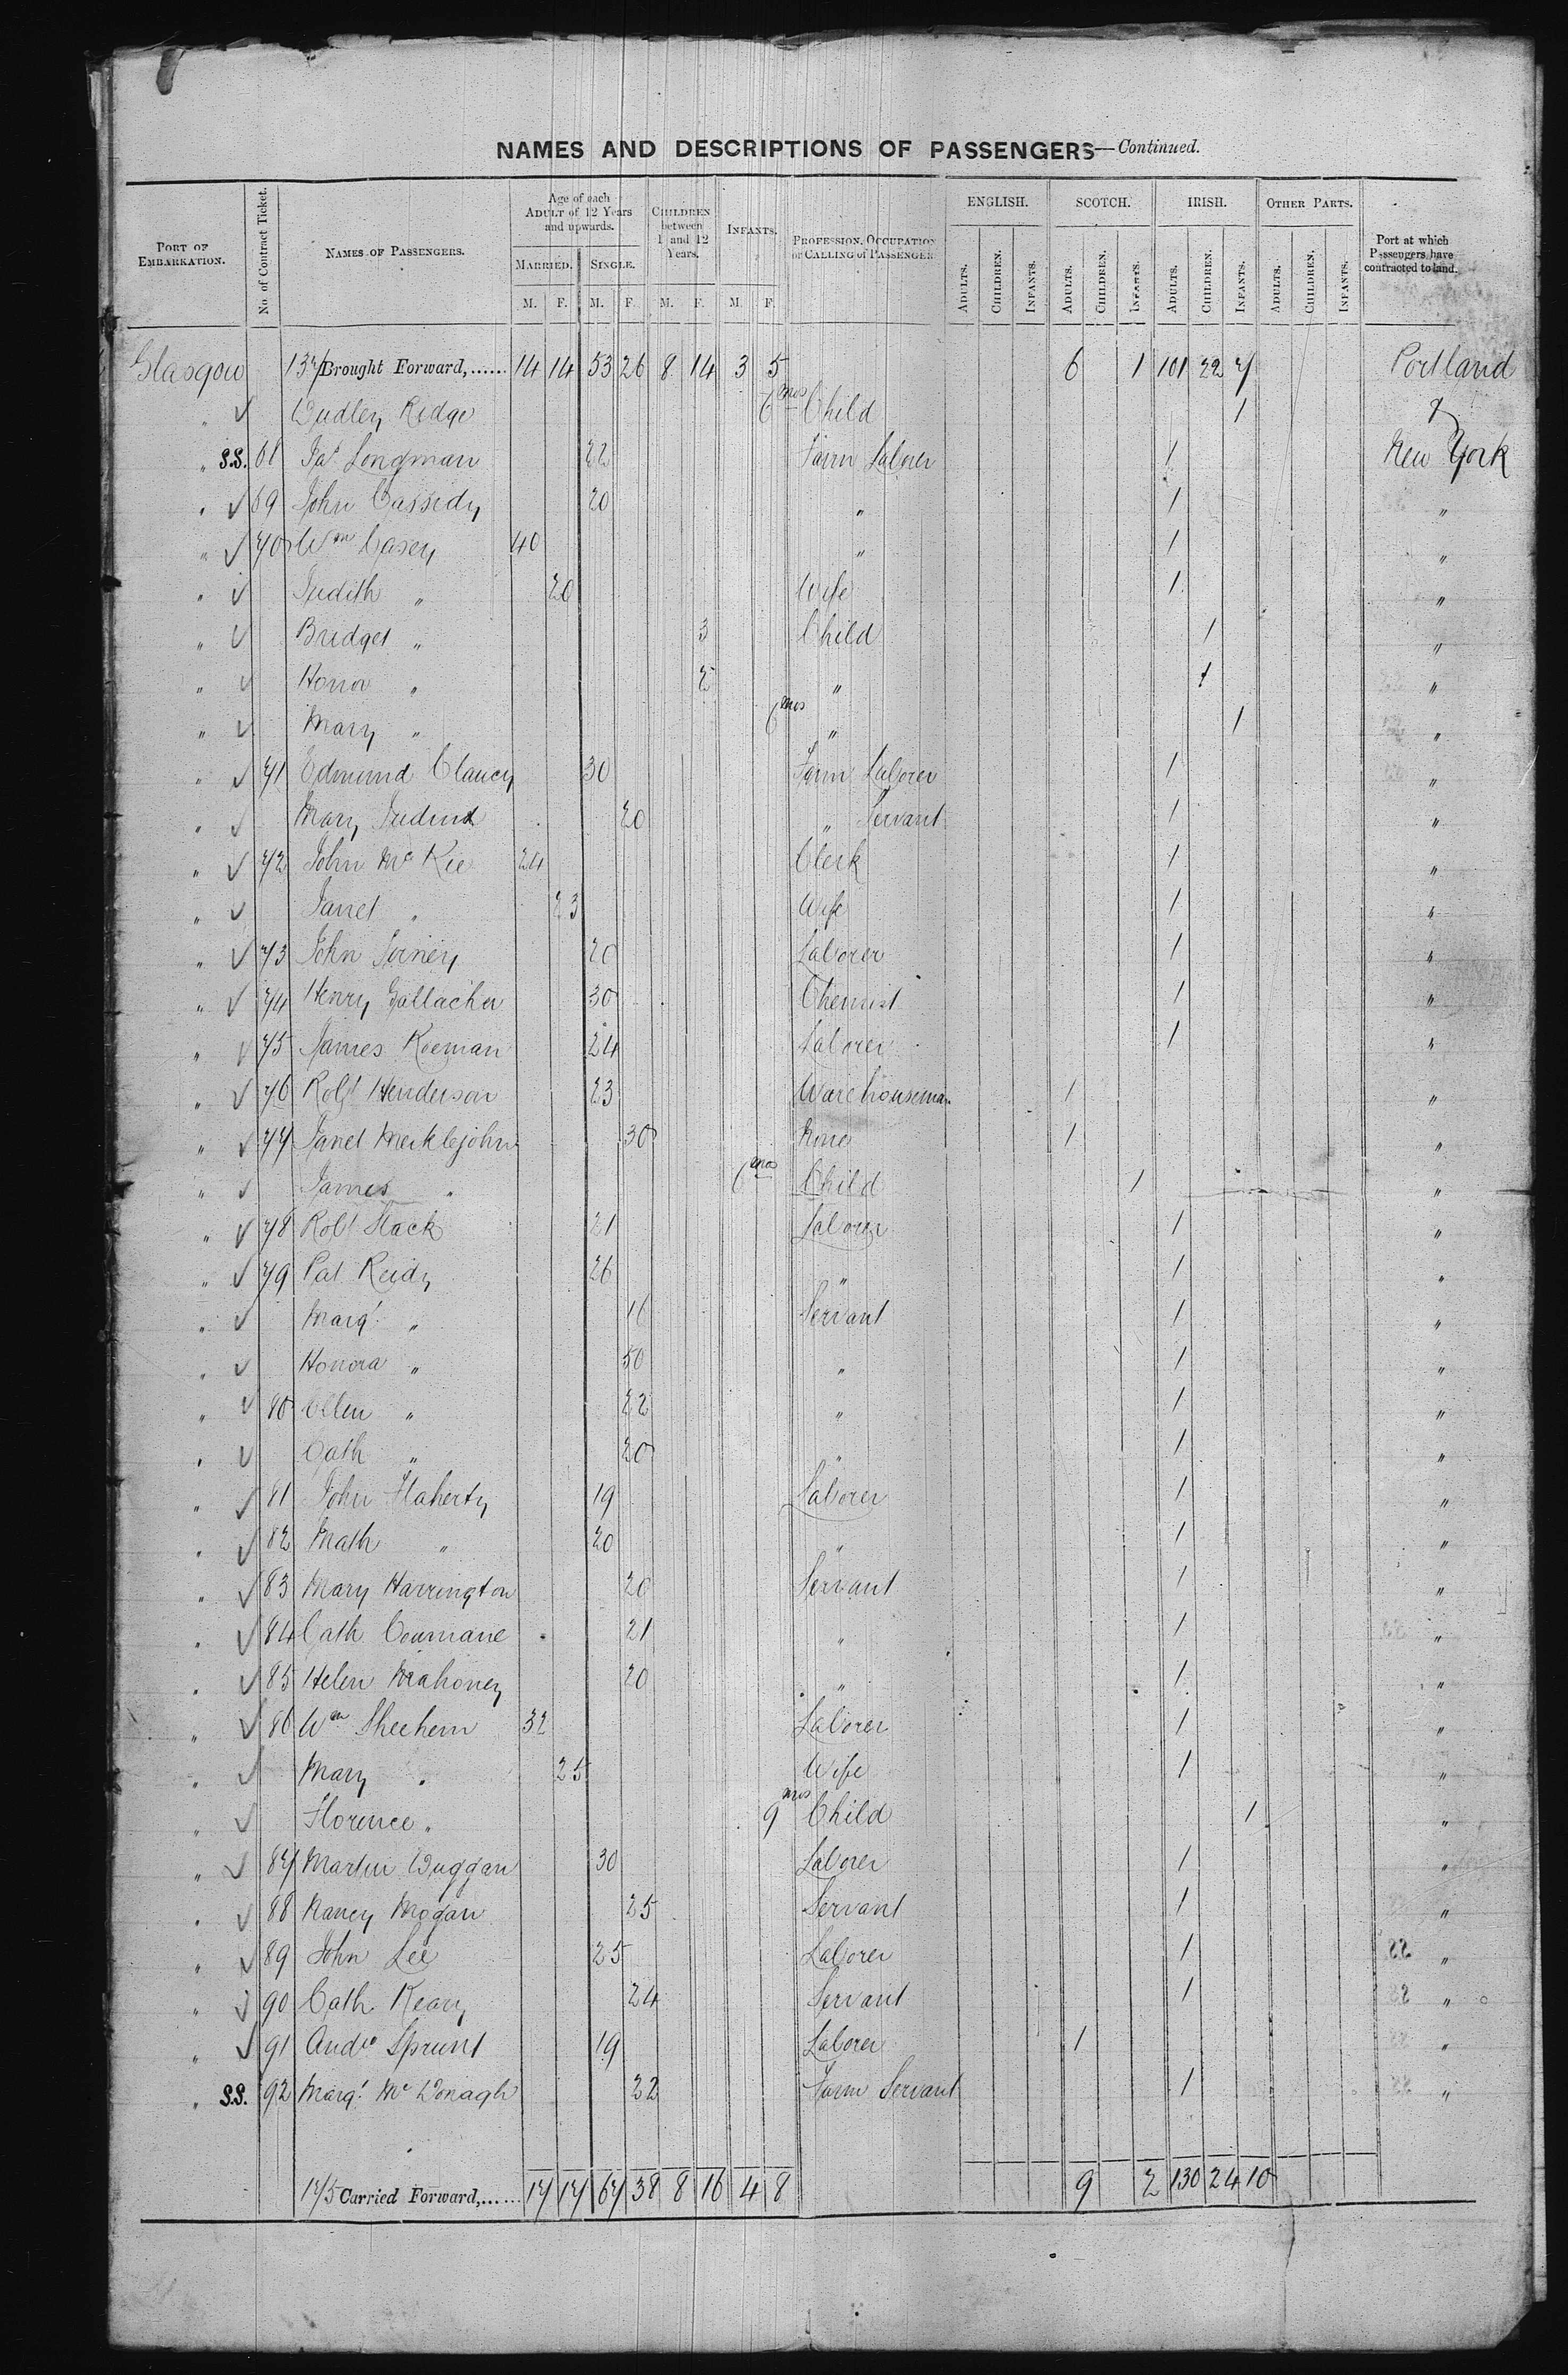 NAMES AND DESCRIPTIONS OF PASSENGERS—Continued.
PORT OF EMBARKATION. No. of Contract Ticket. NAMES OF PASSENGERS. Age of each ADULT of 12 Years and upwards. CHILDREN between 1 and 12 Years. INFANTS. PROFESSION, OCCUPATION or CALLING of PASSENGER ENGLISH. SCOTCH. IRISH. OTHER PARTS. Port at which Passengers have contracted to land.
MARRIED. SINGLE.
M. F. M. F. M. F. M. F. ADULTS. CHILDREN. INFANTS. ADULTS. CHILDREN. INFANTS. ADULTS. CHILDREN. INFANTS. ADULTS. CHILDREN. INFANTS.
Glasgow 137 Brought Forward,...... 14 14 53 26 8 14 3 5 6 1 101 22 7 Portland
" ✓ Dudley Ridge 6 mos Child 1 &
" S.S. 68 Jas Longman 22 Farm Laborer 1 New York
" ✓ 69 John Cassidy 20 " 1 "
" ✓ 70 Wm Casey 40 " 1 "
" ✓ Judith " 20 Wife 1 "
" ✓ Bridget " 3 Child 1 "
" ✓ Honor " 2 " 1 "
" ✓ Mary " 6 mos " 1 "
" ✓ 71 Edmund Clancy 30 Farm Laborer 1 "
" ✓ Mary 20 " Servant 1 "
" ✓ 72 John Mc Kee 24 Clerk 1 "
" ✓ Janet " 23 Wife 1 "
" ✓ 73 John 20 Laborer 1 "
" ✓ 74 Henry Gallacher 30 Chemist 1 "
" ✓ 75 James Keeman 24 Laborer 1 "
" ✓ 76 Robt Henderson 23 Warehouseman 1 "
" ✓ 77 Janet Meiklejohn 30 None 1 "
" ✓ James " 6 mos Child 1 "
" ✓ 78 Robt Slack 21 Laborer 1 "
" ✓ 79 Pat Reidy 26 " 1 "
" ✓ Margt " 16 Servant 1 "
" ✓ Honora " 50 " 1 "
" ✓ 80 Ellen " 22 " 1 "
" ✓ Cath " 20 " 1 "
" ✓ 81 John Flaherty 19 Laborer 1 "
" ✓ 82 Math " 20 " 1 "
" ✓ 83 Mary Harrington 20 Servant 1 "
" ✓ 84 Cath Coumane 21 " 1 "
" ✓ 85 Helen Mahoney 20 " 1 "
" ✓ 86 Wm Sheehem 32 Laborer 1 "
" ✓ Mary " 25 Wife 1 "
" ✓ Florence " 9 mos Child 1 "
" ✓ 87 Martin Duggan 30 Laborer 1 "
" ✓ 88 Nancy Mogan 25 Servant 1 "
" ✓ 89 John Lee 25 Laborer 1 "
" ✓ 90 Cath Keary 24 Servant 1 "
" ✓ 91 Andw Sprunt 19 Laborer 1 "
" S.S. 92 Margt Mc Donagh 22 Farm Servant 1 "
175 Carried Forward,...... 17 17 67 38 8 16 4 8 9 2 130 24 10